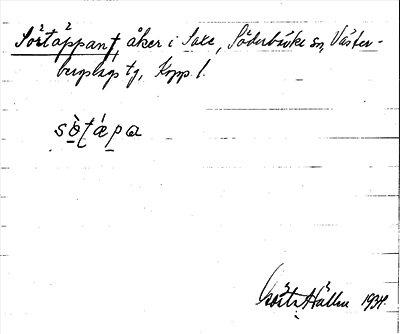 Sörtäppan, åker i Saxe, Söderbärke sn, Väster-
bergslags tg, Kopp. l.
sö̀ʈǽpa
Gösta Hällen 1934.